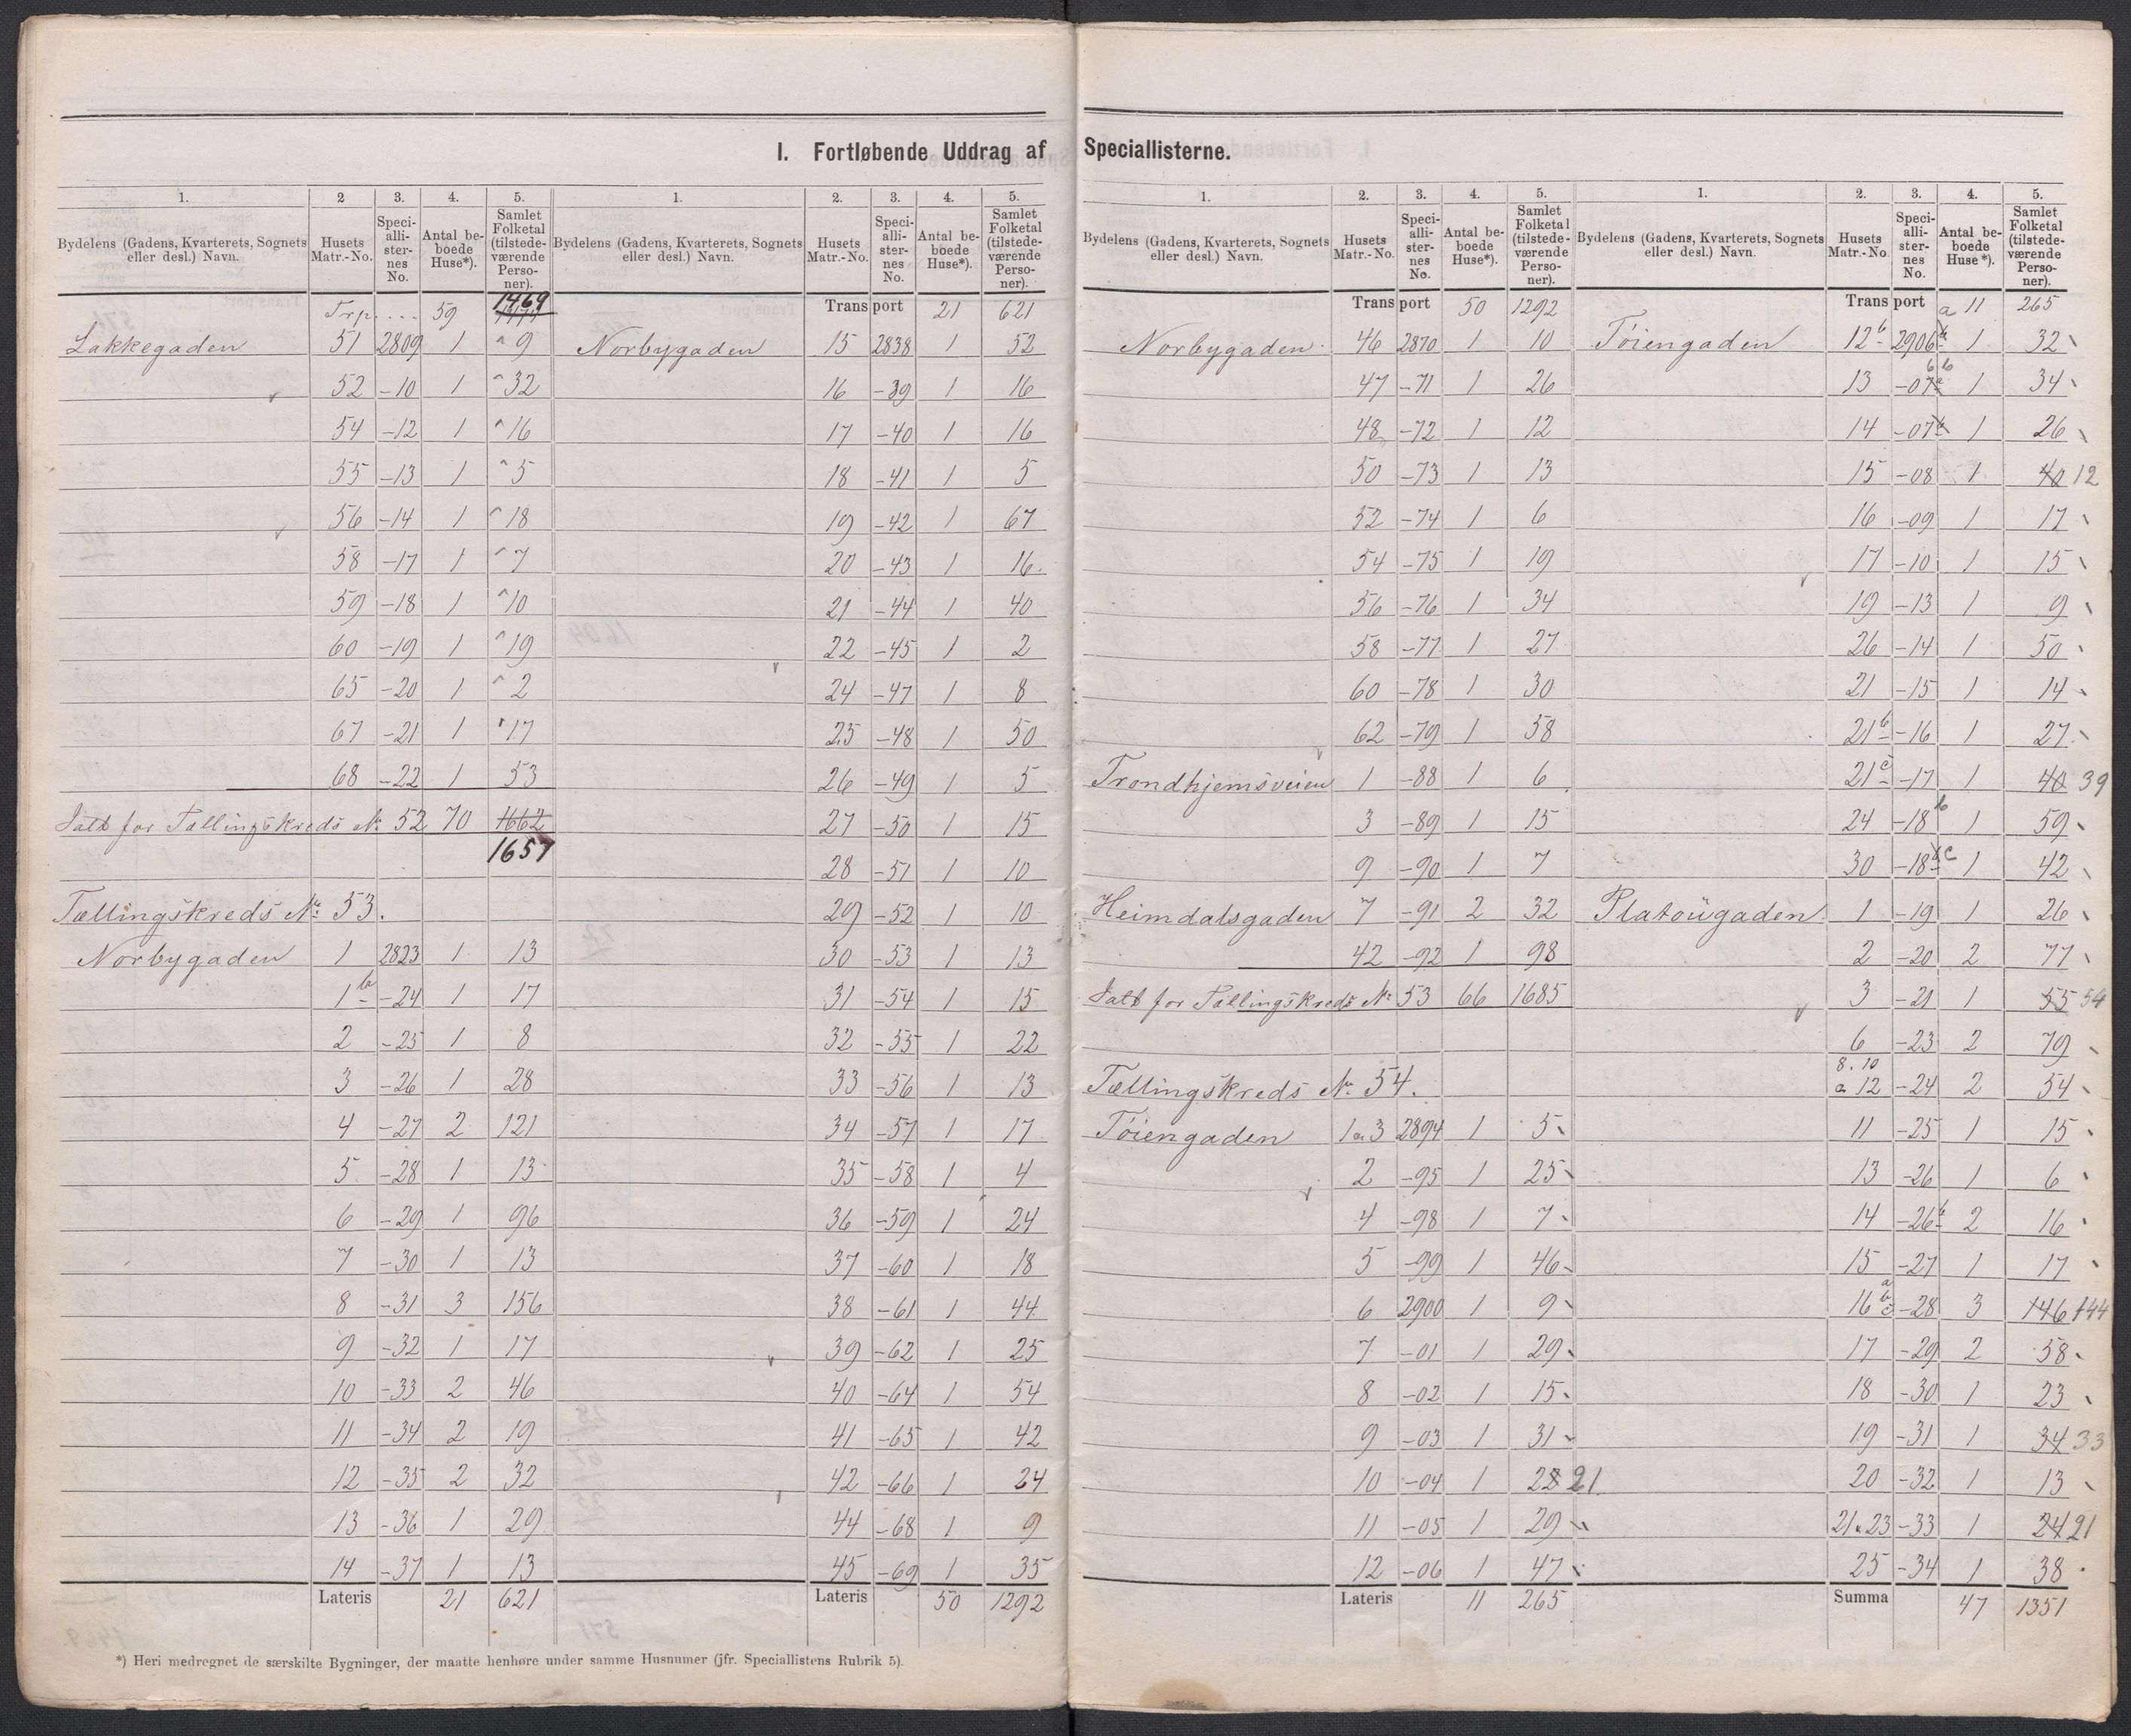 I. Fortløbende Uddrag af Speciallisterne.
1. 2 3. 4. 5. 1. 2. 3. 4. 5.
Bydelens (Gadens, Kvarterets, Sognets eller desl.) Navn. Husets Matr.-No. Speci-alli-ster-nes No. Antal be-boede Huse*). Samlet Folketal (tilstede-værende Perso-ner). Bydelens (Gadens, Kvarterets, Sognets eller desl.) Navn. Husets Matr.-No. Speci-alli-ster-nes No. Antal be-boede Huse*). Samlet Folketal (tilstede-værende Perso-ner).
Trp. ... 59 1469 Transport 21 621
Lakkegaden 51 2809 1 9 Norbygaden 15 2838 1 52
52 -10 1 32 16 -39 1 16
54 -12 1 16 17 -40 1 16
55 -13 1 5 18 -41 1 5
56 -14 1 18 19 -42 1 67
58 -17 1 7 20 -43 1 16
59 -18 1 10 21 -44 1 40
60 -19 1 19 22 -45 1 2
65 -20 1 2 24 -47 1 8
67 -21 1 17 25 -48 1 50
68 -22 1 53 26 -49 1 5
Ialt for Tællingskreds No 52 70 1662 27 -50 1 15
1657 28 -51 1 10
Tællingskreds No 53. 29 -52 1 10
Norbygaden 1 2823 1 13 30 -53 1 13
1b -24 1 17 31 -54 1 15
2 -25 1 8 32 -55 1 22
3 -26 1 28 33 -56 1 13
4 -27 2 121 34 -57 1 17
5 -28 1 13 35 -58 1 4
6 -29 1 96 36 -59 1 24
7 -30 1 13 37 -60 1 18
8 -31 3 156 38 -61 1 44
9 -32 1 17 39 -62 1 25
10 -33 2 46 40 -64 1 54
11 -34 2 19 41 -65 1 42
12 -35 2 32 42 -66 1 24
13 -36 1 29 44 -68 1 9
14 -37 1 13 45 -69 1 35
Lateris 21 621 Lateris 50 1292
*) Heri medregnet de særskilte Bygninger, der maatte henhøre under samme Husnumer (jfr. Speciallistens Rubrik 5).
1. 2. 3. 4. 5. 1. 2. 3. 4. 5.
Bydelens (Gadens, Kvarterets, Sognets eller desl.) Navn. Husets Matr.-No. Speci-alli-ster-nes No. Antal be-boede Huse*). Samlet Folketal (tilstede-værende Perso-ner). Bydelens (Gadens, Kvarterets, Sognets eller desl.) Navn. Husets Matr.-No. Speci-alli-ster-nes No. Antal be-boede Huse*). Samlet Folketal (tilstede-værende Perso-ner).
Transport 50 1292 Transport 11 265
Norbygaden 46 2870 1 10 Töiengaden 12b 2906 a 1 32
47 -71 1 26 13 -07 1 34
48 -72 1 12 14 -07 1 26
50 -73 1 13 15 -08 1 40 12
52 -74 1 6 16 -09 1 17
54 -75 1 19 17 -10 1 15
56 -76 1 34 19 -13 1 9
58 -77 1 27 26 -14 1 50
60 -78 1 30 21 -15 1 14
62 -79 1 58 21b -16 1 27
Trondhjemsveien 1 -88 1 6 21c -17 1 40 39
3 -89 1 15 24 -18b 1 59
9 -90 1 7 30 -18c 1 42
Heimdalsgaden 7 -91 2 32 Platoügaden 1 -19 1 26
42 -92 1 98 2 -20 2 77
Ialt for Tællingskreds No 53 66 1685 3 -21 1 55 54
6 -23 2 79
Tællingskreds No 54. 8. 10 a 12 -24 2 54
Töiengaden 1 a 3 2894 1 5 11 -25 1 15
2 -95 1 25 13 -26 1 6
4 -98 1 7 14 -26b 2 16
5 -99 1 46 15 -27 1 17
6 2900 1 9 16 a b c -28 3 146 144
7 -01 1 29 17 -29 2 58
8 -02 1 15 18 -30 1 23
9 -03 1 31 19 -31 1 34 33
10 -04 1 22 21 20 -32 1 13
11 -05 1 29 21 a 23 -33 1 24 21
12 -06 1 47 25 -34 1 38
Lateris 11 265 Summa 47 1351